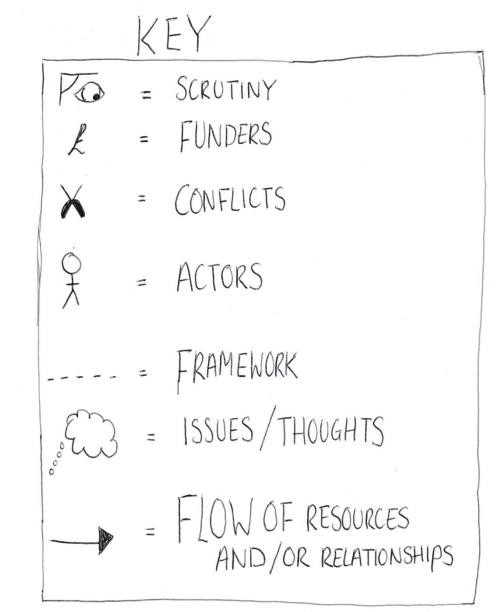 KEY
= SCRUTINY
£ = FUNDERS
= CONFLICTS
= ACTORS
----- = FRAMEWORK
= ISSUES/THOUGHTS
= FLOW OF RESOURCES
AND/OR RELATIONSHIPS